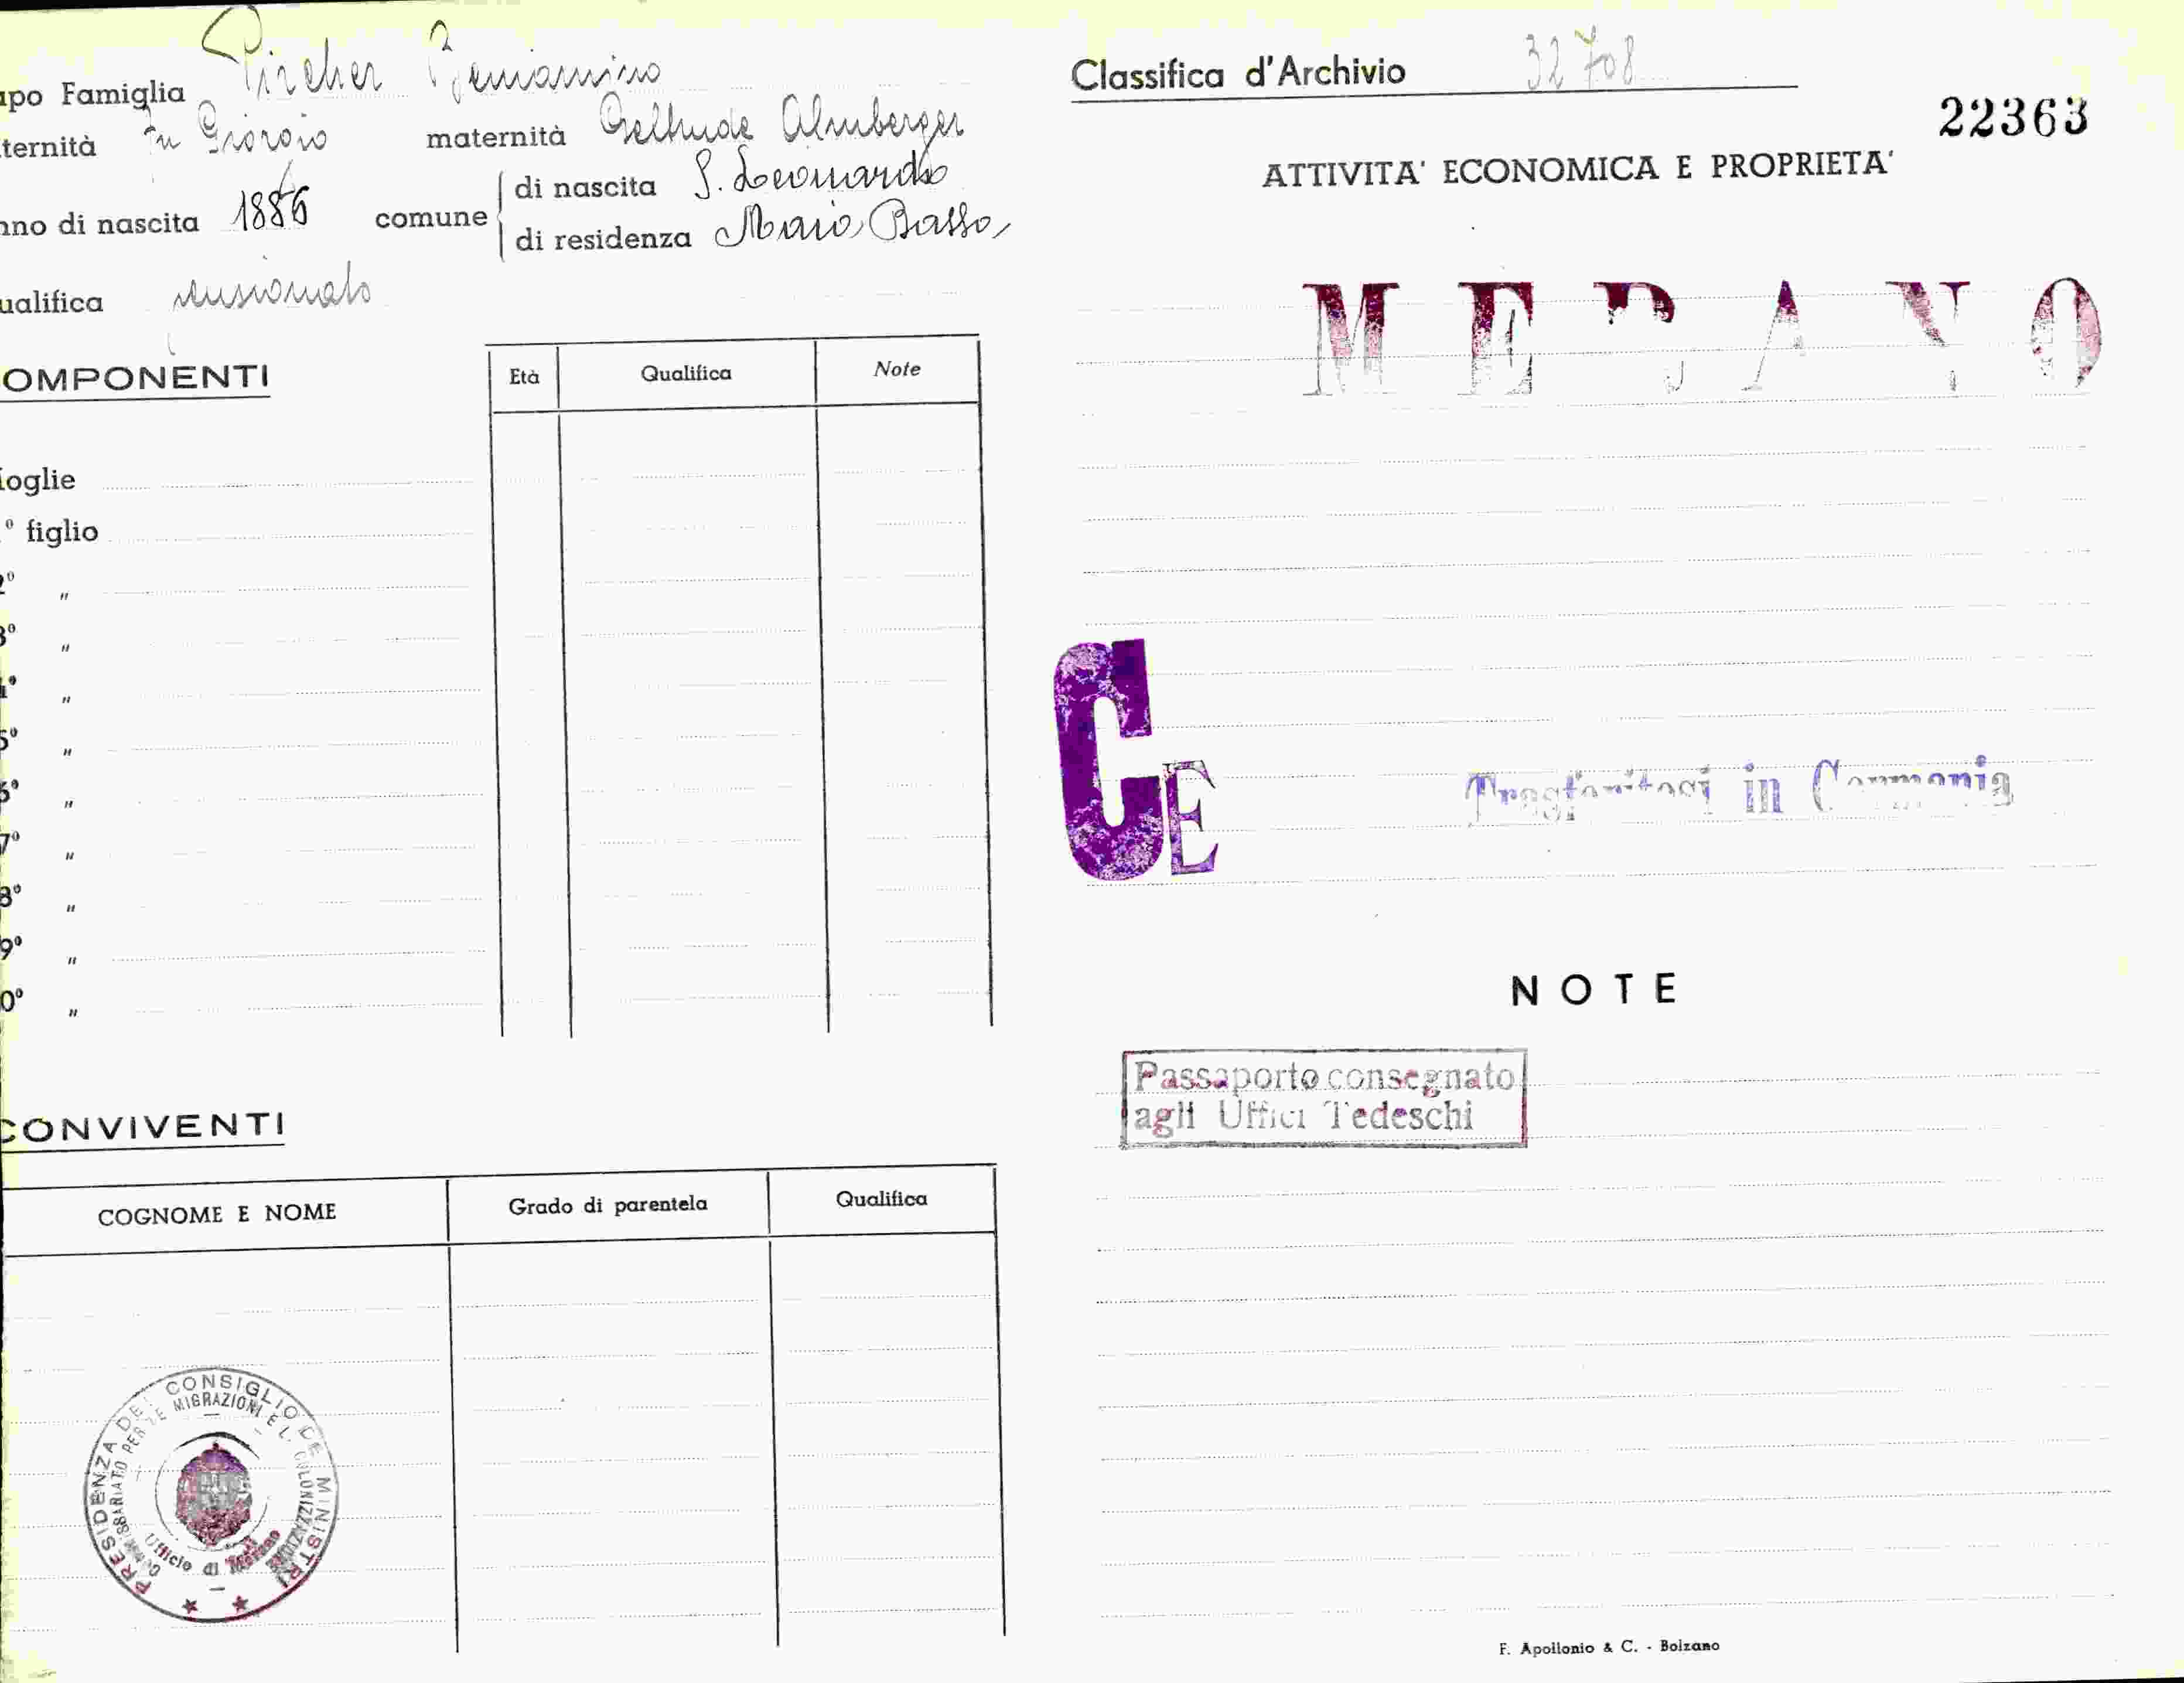 apo Famiglia Pircher Beniamino
ternità fu Giorgio maternità Geltrude Almberger
nno di nascita 1886 comune di nascita S. Leonardo
di residenza Maia Bassa
ualifica pensionato
OMPONENTI
Età Qualifica Note
oglie
° figlio
2° "
3° "
4° "
5° "
6° "
7° "
8° "
9° "
0° "
CONVIVENTI
COGNOME E NOME Grado di parentela Qualifica
PRESIDENZA DEL CONSIGLIO DEI MINISTRI
COMMISSARIATO PER LE MIGRAZIONI E L. COLONIZZAZIONE
Ufficio di Merano
Classifica d'Archivio 32708
22363
ATTIVITA' ECONOMICA E PROPRIETA'
MERANO
CE
Trasferitosi in Germania
NOTE
Passaporto consegnato
agli Uffici Tedeschi
F. Apollonio & C. - Bolzano